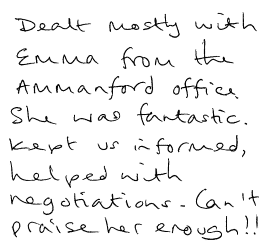 Dealt mostly with
Emma from the
Ammanford office.
She was fantastic.
Kept us informed,
helped with
negotiations. Can't
praise her enough!!